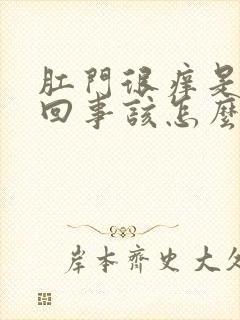 肛門很痒是
回事該怎麼
岸本齊史大久